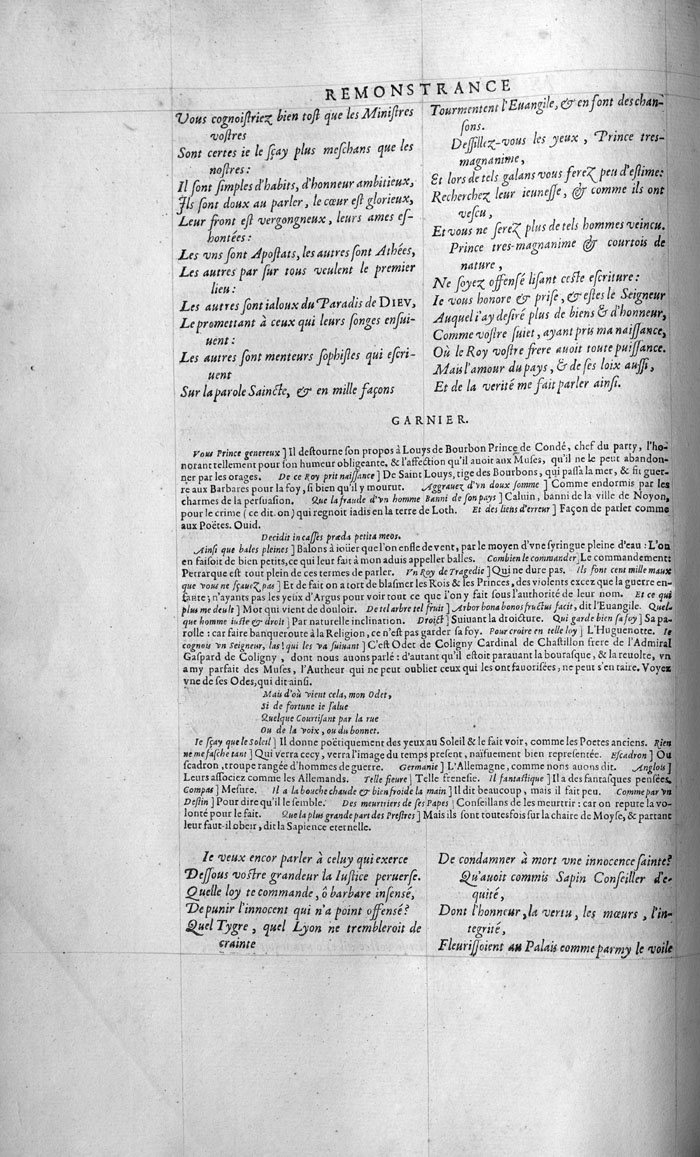 REMONSTRANCE
Vous cognoistriez bien tost que les Ministres
vostres
Sont certes ie le sçay plus meschans que les
nostres:
Il sont simples d'habits, d'honneur ambitieux,
Ils sont doux au parler, le cœur est glorieux,
Leur front est vergongneux, leurs ames es-
hontées:
Les vns sont Apostats, les autres sont Athées,
Les autres par sur tous veulent le premier
lieu:
Les autres sont ialoux du Paradis de DIEV,
Le promettant à ceux qui leurs songes ensui-
uent:
Les autres sont menteurs sophistes qui escri-
uent
Sur la parole Saincte, & en mille façons
Tourmentent l'Euangile, & en font des chan-
sons.
Dessillez-vous les yeux, Prince tres-
magnanime,
Et lors de tels galans vous ferez peu d'estime:
Recherchez leur ieunesse, & comme ils ont
vescu,
Et vous ne serez plus de tels hommes veincu.
Prince tres-magnanime & courtois de
nature,
Ne soyez offensé lisant ceste escriture:
Ie vous honore & prise, & estes le Seigneur
Auquel i'ay desiré plus de biens & d'honneur,
Comme vostre suiet, ayant pris ma naissance,
Où le Roy vostre frere auoit toute puissance.
Mais l'amour du pays, & de ses loix aussi,
Et de la verité me fait parler ainsi.
GARNIER.
Vous Prince genereux] Il destourne son propos à Louys de Bourbon Prince de Condé, chef du party, l'ho-
norant tellement pour son humeur obligeante, & l'affection qu'il auoit aux Muses, qu'il ne le peut abandon-
ner par les orages. De ce Roy prit naissance] De Saint Louys, tige des Bourbons, qui passa la mer, & fit guer-
re aux Barbares pour la foy, si bien qu'il y mourut. Aggrauez d'vn doux somme] Comme endormis par les
charmes de la persuasion. Que la fraude d'vn homme Banni de son pays] Caluin, banni de la ville de Noyon,
pour le crime (ce dit-on) qui regnoit iadis en la terre de Loth. Et des liens d'erreur] Façon de parler comme
aux Poëtes. Ouid.
Decidit in casses præda petita meos.
Ainsi que bales pleines] Balons à ioüer que l'on enfle de vent, par le moyen d'vne syringue pleine d'eau: L'on
en faisoit de bien petits, ce qui leur fait à mon aduis appeller balles. Combien le commander] Le commandement:
Petrarque est tout plein de ces termes de parler. Vn Roy de Tragedie] Qui ne dure pas. Ils sont cent mille maux
que vous ne sçauez pas] Et de fait on a tort de blasmer les Rois & les Princes, des violents excez que la guerre en-
fante; n'ayants pas les yeux d'Argus pour voir tout ce que l'on y fait sous l'authorité de leur nom. Et ce qui
plus me deult] Mot qui vient de douloir. De tel arbre tel fruit] Arbor bona bonos fructus facit, dit l'Euangile. Quel-
que homme iuste & droit] Par naturelle inclination. Droict] Suiuant la droicture. Qui garde bien sa foy] Sa pa-
rolle: car faire banqueroute à la Religion, ce n'est pas garder sa foy. Pour croire en telle loy] L'Huguenotte. Ie
cognois vn Seigneur, las! qui les va suiuant] C'est Odet de Coligny Cardinal de Chastillon frere de l'Admiral
Gaspard de Coligny, dont nous auons parlé: d'autant qu'il estoit parauant la bourasque, & la reuolte, vn
amy parfait des Muses, l'Autheur qui ne peut oublier ceux qui les ont fauorisées, ne peut s'en taire. Voyez
vne de ses Odes, qui dit ainsi.
Mais d'où vient cela, mon Odet,
Si de fortune ie salue
Quelque Courtisant par la rue
Ou de la voix, ou du bonnet.
Ie sçay que le Soleil] Il donne poëtiquement des yeux au Soleil & le fait voir, comme les Poetes anciens. Rien
ne me fasche tant] Qui verra cecy, verra l'image du temps present, naïfuement bien representée. Escadron] Ou
scadron, troupe rangée d'hommes de guerre. Germanie] L'Allemagne, comme nons auons dit. Anglois]
Leurs associez comme les Allemands. Telle fieure] Telle frenesie. Il fantastique] Il a des fantasques pensées.
Compas] Mesure. Il a la bouche chaude & bien froide la main] Il dit beaucoup, mais il fait peu. Comme par vn
Destin] Pour dire qu'il le semble. Des meurtriers de ses Papes] Conseillans de les meurtrir: car on repute la vo-
lonté pour le fait. Que la plus grande part des Prestres] Mais ils sont toutesfois sur la chaire de Moyse, & partant
leur faut-il obeir, dit la Sapience eternelle.
Ie veux encor parler à celuy qui exerce
Dessous vostre grandeur la Iustice peruerse.
Quelle loy te commande, ô barbare insensé,
De punir l'innocent qui n'a point offensé?
Quel Tygre, quel Lyon ne trembleroit de
crainte
De condamner à mort vne innocence sainte?
Qu'auoit commis Sapin Conseiller d'e-
quité,
Dont l'honneur, la vertu, les mœurs, l'in-
tegrité,
Fleurissoient au Palais comme parmy le voile